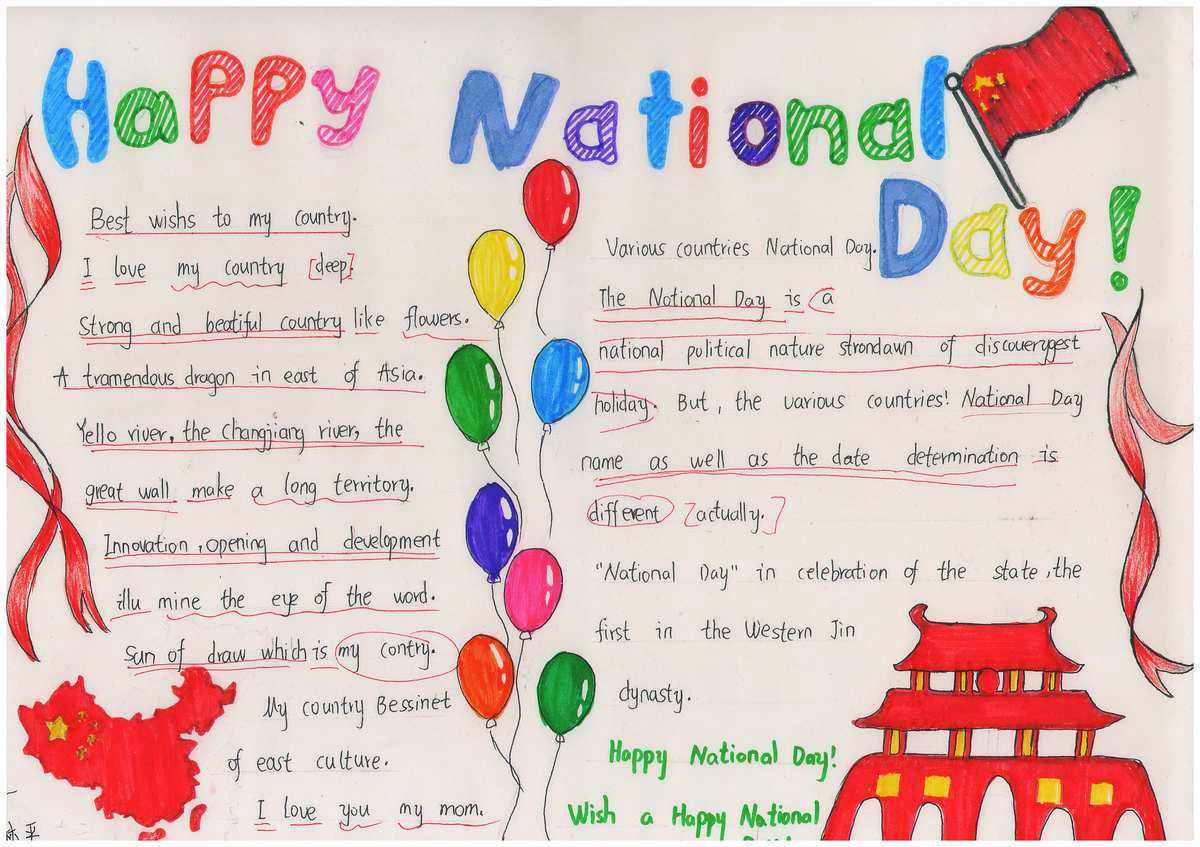 Happy National
Day!
Best wishs to my country.
I love my country [deep].
Strong and beatiful country like flowers.
A tramendous dragon in east of Asia.
Yello river, the changjiang river, the
great wall make a long territory.
Innovation, opening and development
illu mine the eye of the word.
Sun of draw which is my contry.
My country Bessinet
of east culture.
I love you my mom.
Various countries National Day.
The National Day is a
national political nature strondawn of discouerygest
holiday. But, the various countries! National Day
name as well as the date determination is
different [actually.]
"National Day" in celebration of the state, the
first in the Western Jin
dynasty.
Happy National Day!
Wish a Happy National